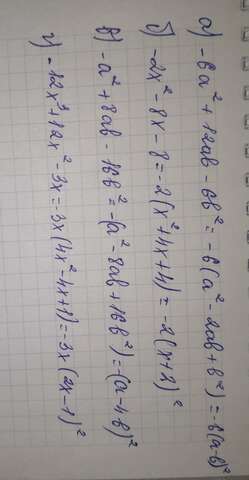 а) -6a² + 12ab - 6b² = -6(a² - 2ab + b²) = -6(a-b)²
б) -2x² - 8x - 8 = -2(x² + 4x + 4) = -2(x+2)²
в) -a² + 8ab - 16b² = -(a² - 8ab + 16b²) = -(a-4b)²
г) -12x³ + 12x² - 3x = -3x(4x² - 4x + 1) = -3x(2x-1)²